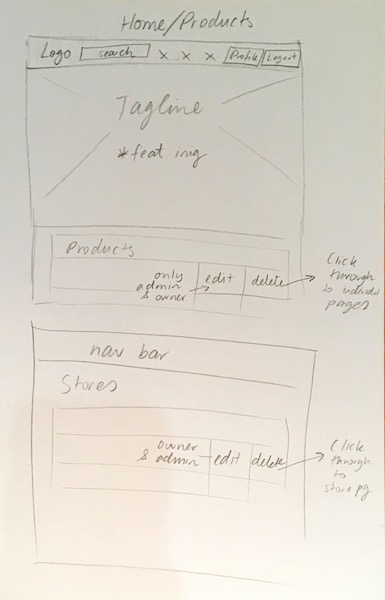 Home/Products
Logo search x x x Profile Logout
Tagline
*feat img
Products
only admin & owner
edit delete
Click through to individual pages
nav bar
Stores
owner & admin
edit delete
Click through to store pg